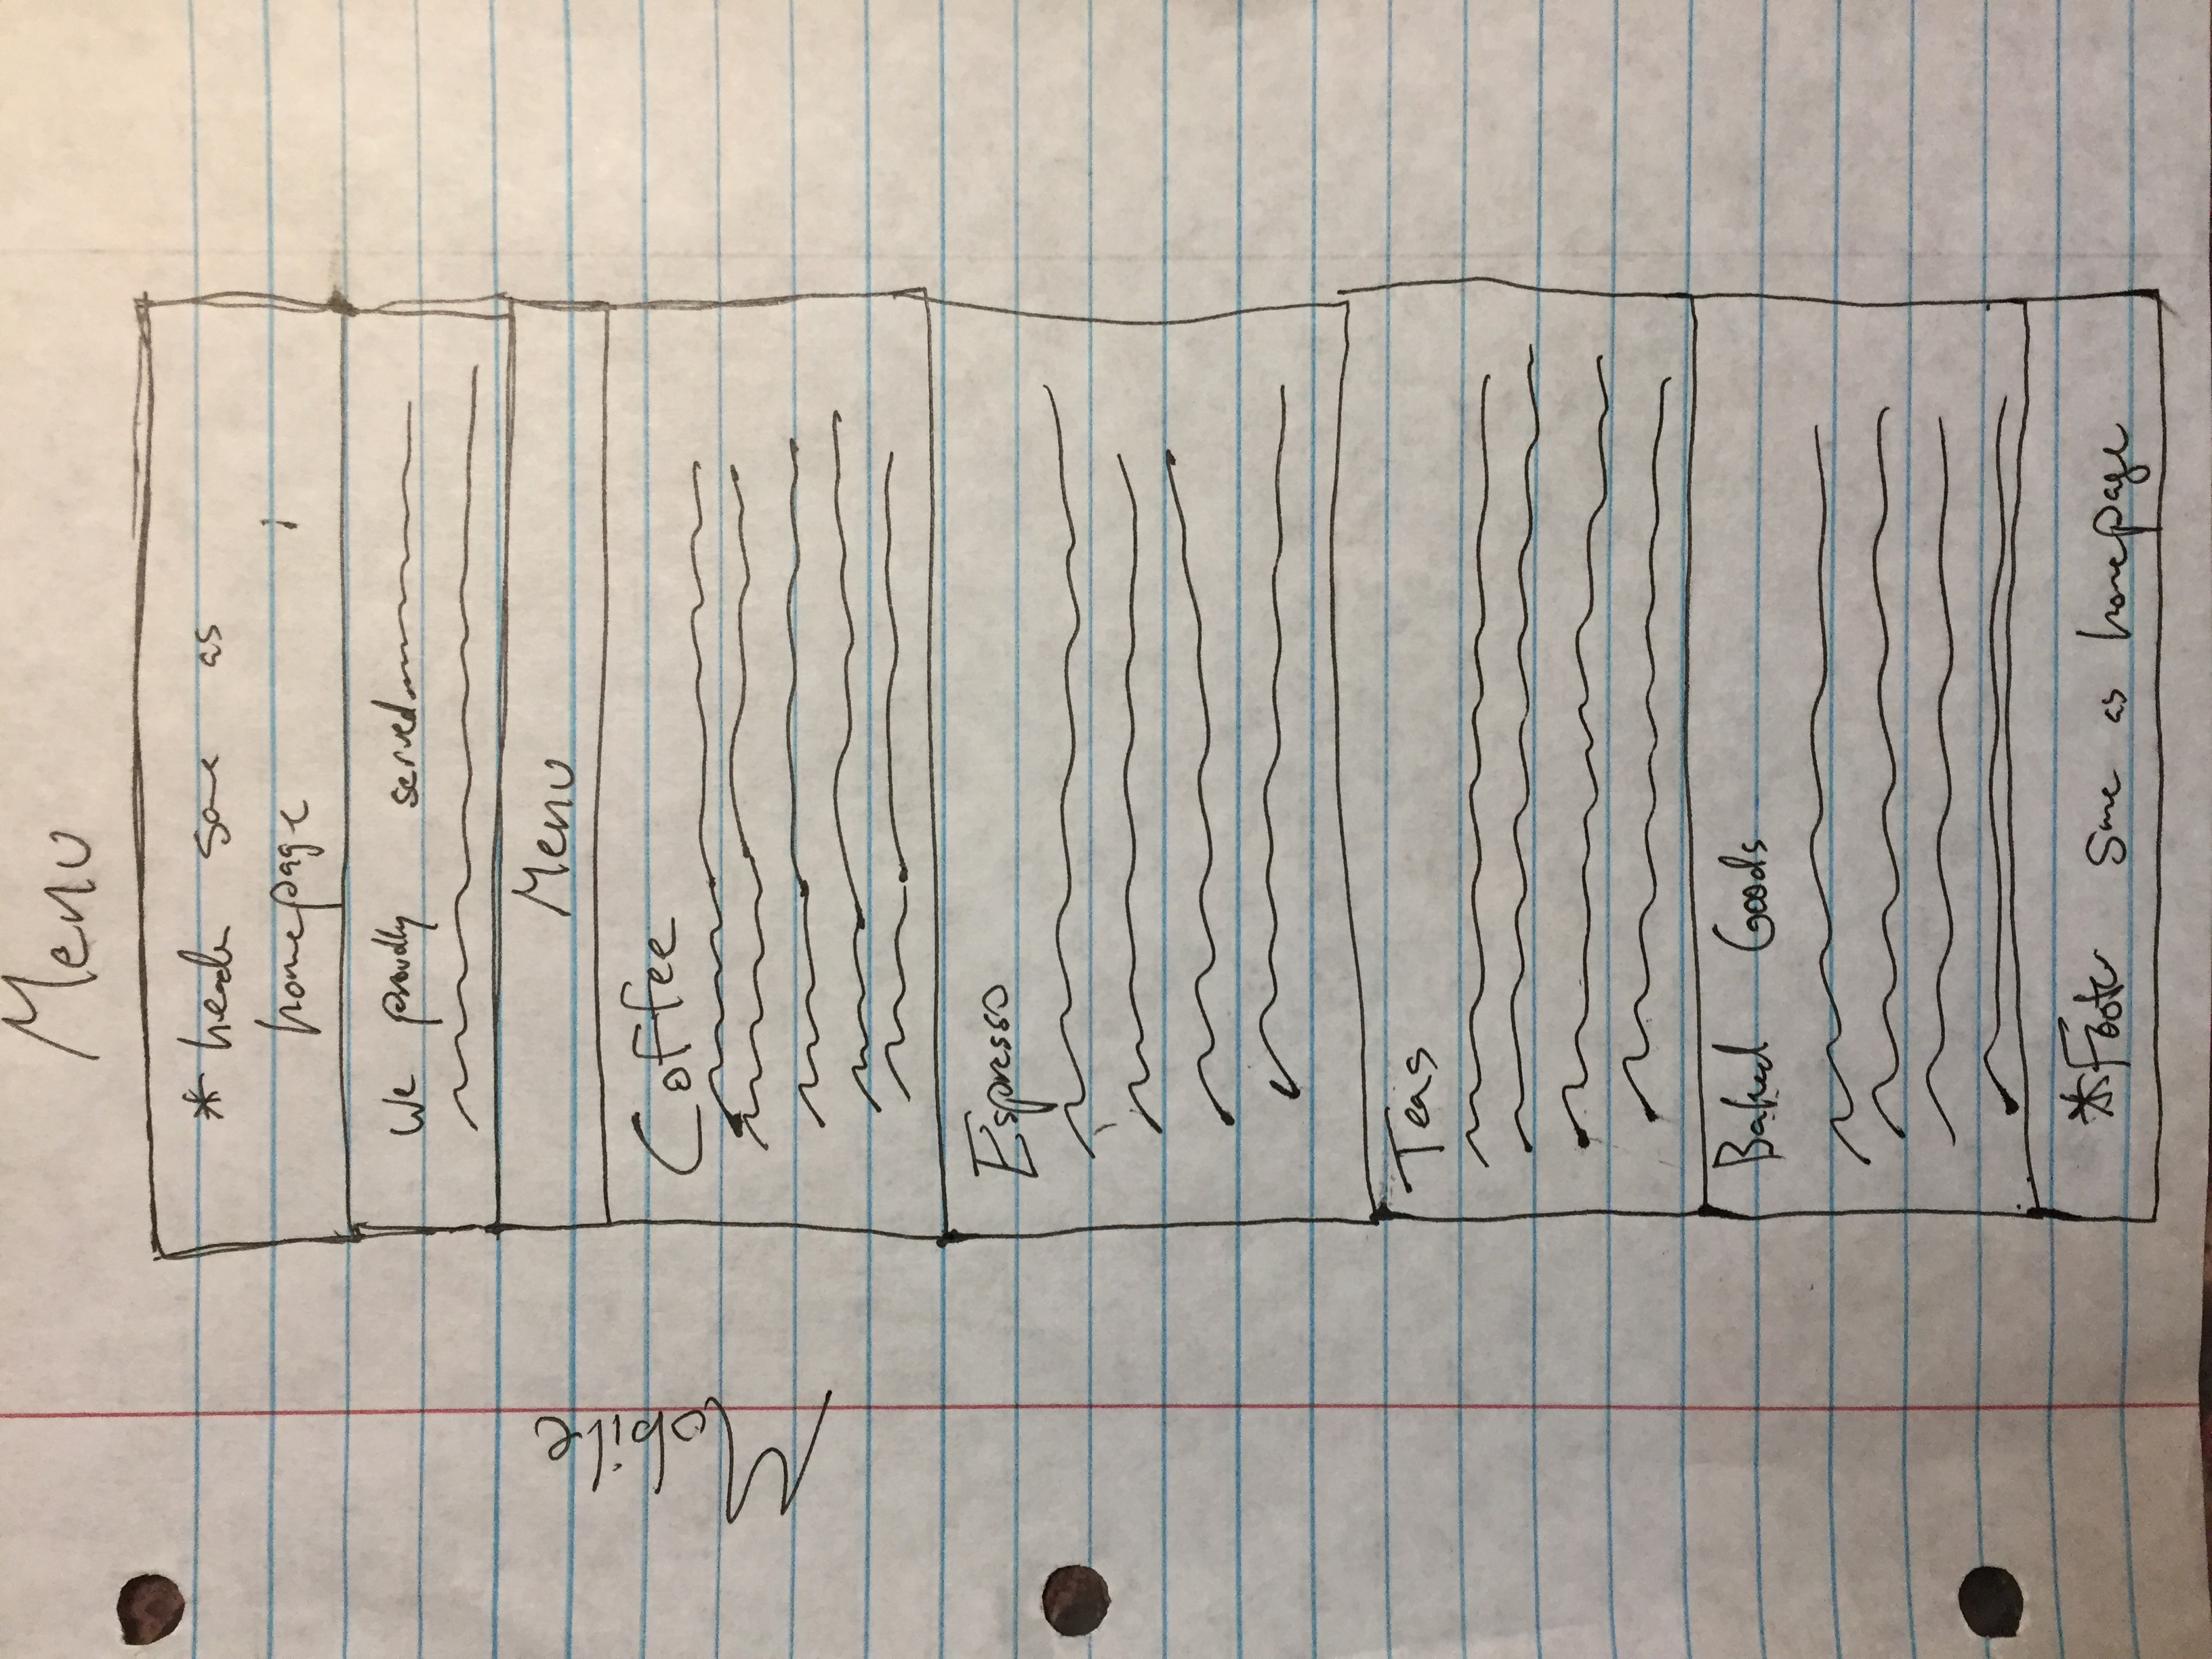 Menu
* header same as
homepage
We proudly served
Menu
Mobile
Coffee
Espresso
Teas
Baked Goods
*Footer same as homepage